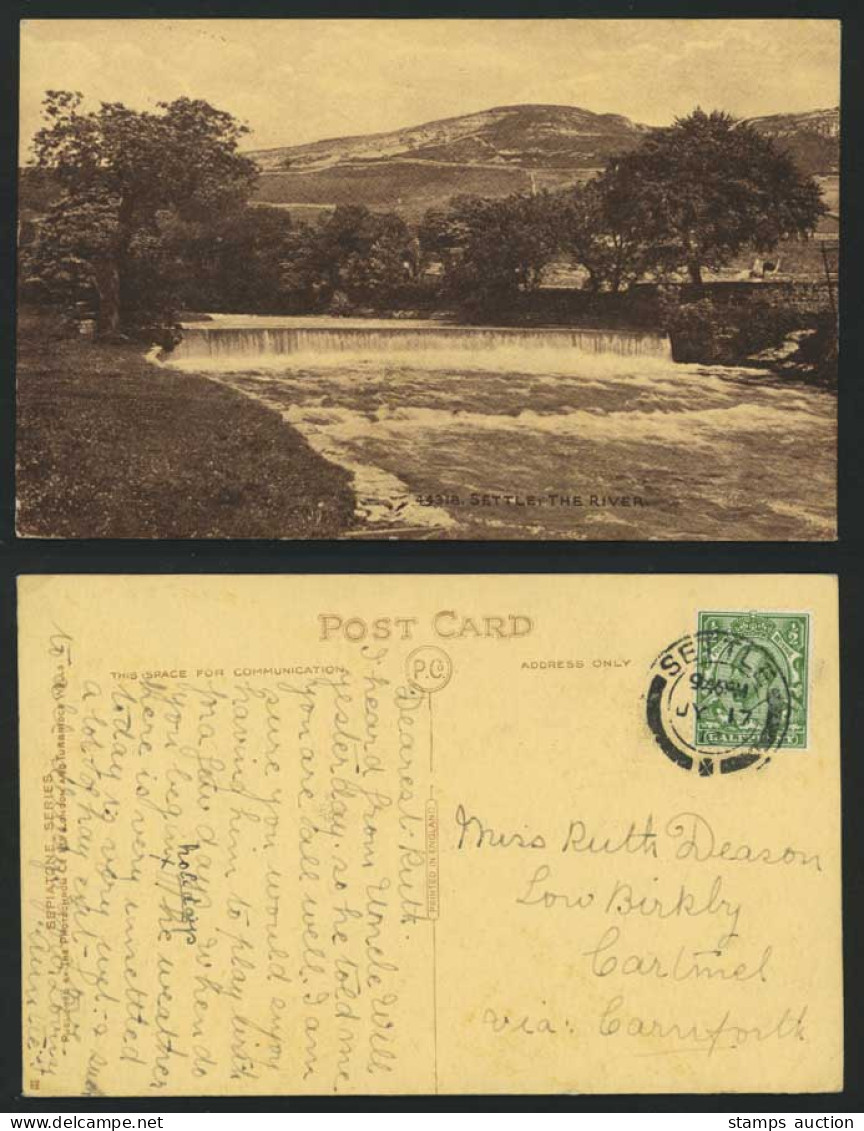 44318. SETTLE; THE RIVER.
POST CARD
THIS SPACE FOR COMMUNICATION
P.C.
ADDRESS ONLY
Dearest Ruth.
I heard from Uncle Will
yesterday. so he told me
you are all well. I am
sure you would enjoy
having him to play with
for a few days. When do
you begin holidays
the weather
here is very unsettled
today is very wet - & such
a lot of hay cut -
PRINTED IN ENGLAND
SEPIATONE SERIES
SETTLE
JY 17
½
HALFPENNY
Miss Ruth Deason
Low Birkby
Cartmel
via: Carnforth
stamps auction